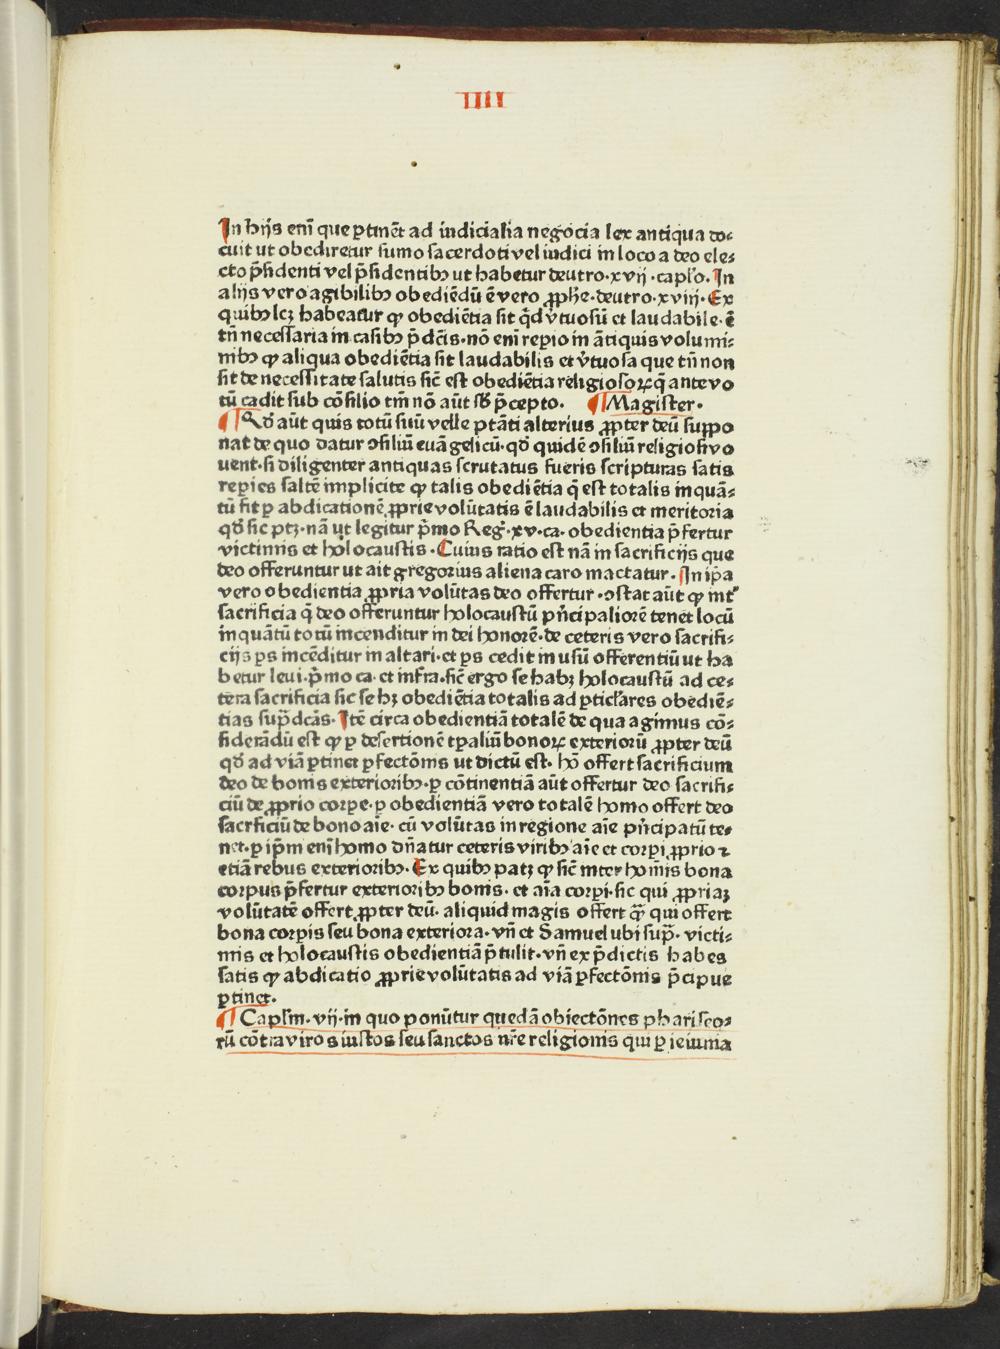 IIII
In hijs enī que ꝑtinēt ad iudicialia negocia lex antiqua do⸗
cuit ut obediretur sumo sacerdoti vel iudici in loco a deo ele⸗
cto p̄sidenti vel p̄sidentibꝫ ut habetur deutro·xvij·caplo. In
alijs vero agibilibꝫ obediēdū ē vero ꝓphe·deutro·xviij·Ex
quibꝫ lcꝫ habeatur ꝙ obediētia sit q̄d v̄tuosū et laudabile·ē
tn̄ necessaria in casibꝫ p̄dc̄is·nō enī reꝑio in ātiquis volumi⸗
nibꝫ ꝙ aliqua obediētia sit laudabilis et v̄tuosa que tn̄ non
sit de necessitate salutis sic̄ est obediētia religiosoꝝ q̄ ante vo
tū cadit sub cōsilio tm̄ nō aūt sb̄ p̄cepto. ¶ Magister·
¶ Qd̄ aūt quis totū suū velle ptāti alterius ꝓpter deū suppo
nat de quo datur ꝯsiliū euāgelicū·qd̄ quidē ꝯsiliū religiosi vo
uent·si diligenter antiquas scrutatus fueris scripturas satis
reperies saltē implicite ꝙ talis obediētia q̄ est totalis inquā⸗
tū fit ꝑ abdicationē ꝓprie volūtatis ē laudabilis et meritoria
qd̄ sic ptꝫ·nā ut legitur p̄mo Reḡ·xv·ca·obedientia p̄fertur
victimis et holocaustis·Cuius ratio est nā in sacrificijs que
deo offeruntur ut ait gregorius aliena caro mactatur·In ip̄a
vero obedientia ꝓpria volūtas deo offertur·ꝯstat aūt ꝙ int̄
sacrificia q̄ deo offeruntur holocaustū pn̄cipaliorē tenet locū
inquātū totū incenditur in dei honorē·de ceteris vero sacrifi⸗
cijs ꝑs incēditur in altari·et ꝑs cedit in usū offerentiū ut ha
betur leui·p̄mo ca·et infra·sic̄ ergo se habꝫ holocaustū ad ce⸗
tera sacrificia sic se hꝫ obediētia totalis ad ꝑticlares obediē⸗
tias sup̄dcās·Itē circa obedientiā totalē de qua agimus cō⸗
siderādū est ꝙ ꝑ desertionē tꝑaliū bonoꝝ exteriorū ꝓpter deū
qd̄ ad viā ꝑtinet ꝑfectōnis ut dictū est·hō offert sacrificium
deo de bonis exterioribꝫ·ꝑ cōtinentiā aūt offertur deo sacrifi⸗
ciū de ꝓprio corpe·ꝑ obedientiā vero totalē homo offert deo
sacrficiū de bono aīe·cū volūtas in regione aīe pn̄cipatū te⸗
net·ꝑ ip̄m enī homo dn̄atur ceteris viribꝫ aīe et corpi ꝓprio ⁊
etiā rebus exterioribꝫ·Ex quibꝫ patꝫ ꝙ sic̄ inter hoīnis bona
corpus p̄fertur exterioribꝫ bonis·et aīa corpi·sic qui ꝓpriaꝫ
volūtatē offert ꝓpter deū·aliquid magis offert q̄ꝫ qui offert
bona corpis seu bona exteriora·vn̄ et Samuel ubi sup̄·victi⸗
mis et holocaustis obedientiā p̄tulit·vn̄ ex p̄dictis habes
satis ꝙ abdicatio ꝓprie volūtatis ad viā ꝑfectōnis p̄cipue
ꝑtinet·
¶ Caplm·vij·in quo ponūtur quedā obiectōnes phariseo⸗
rū cōtra viros iustos seu sanctos nr̄e religionis qui ꝑ ieiunia